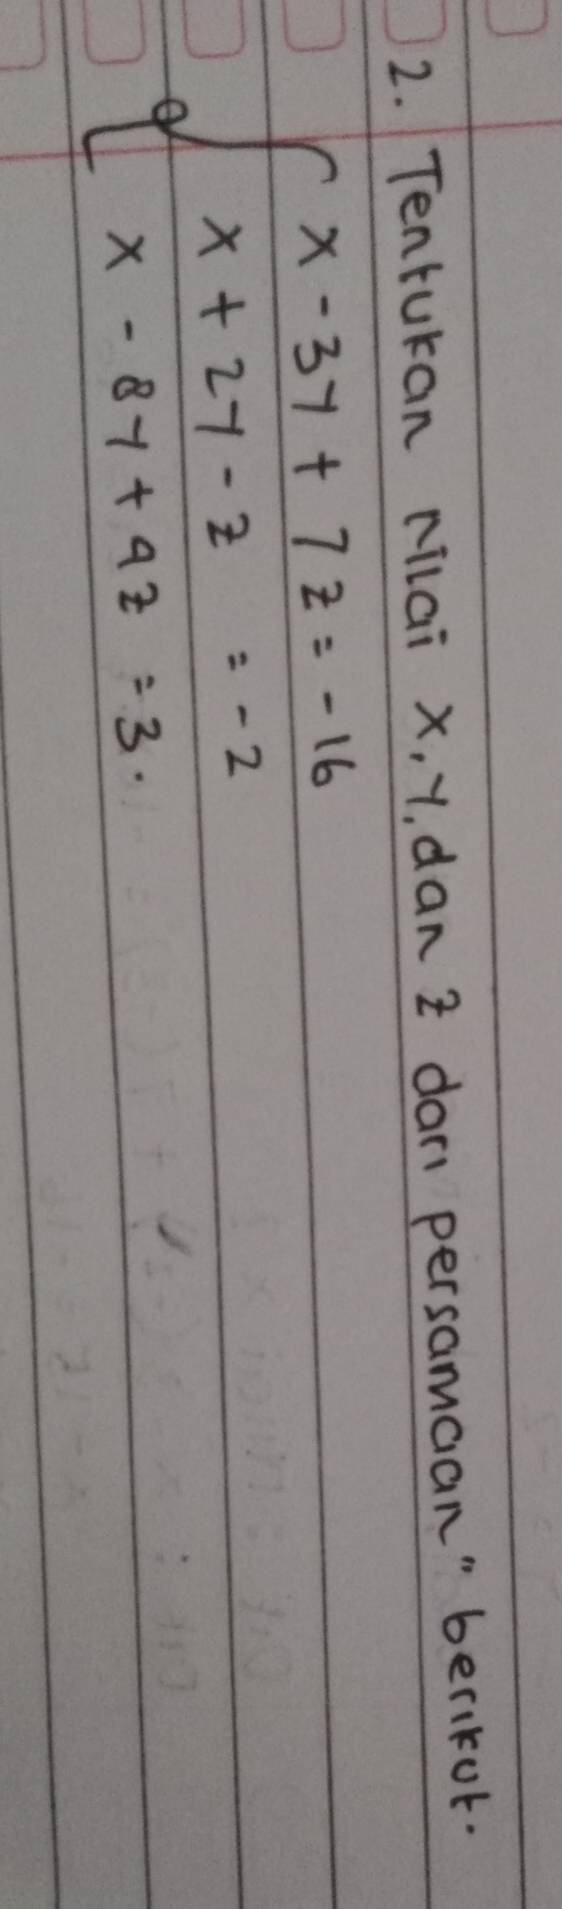 2. Tentukan Nilai x, y, dan z dari persamaan" berikut.
x - 3y + 7z = -16
x + 2y - z = -2
x - 8y + 4z = 3.